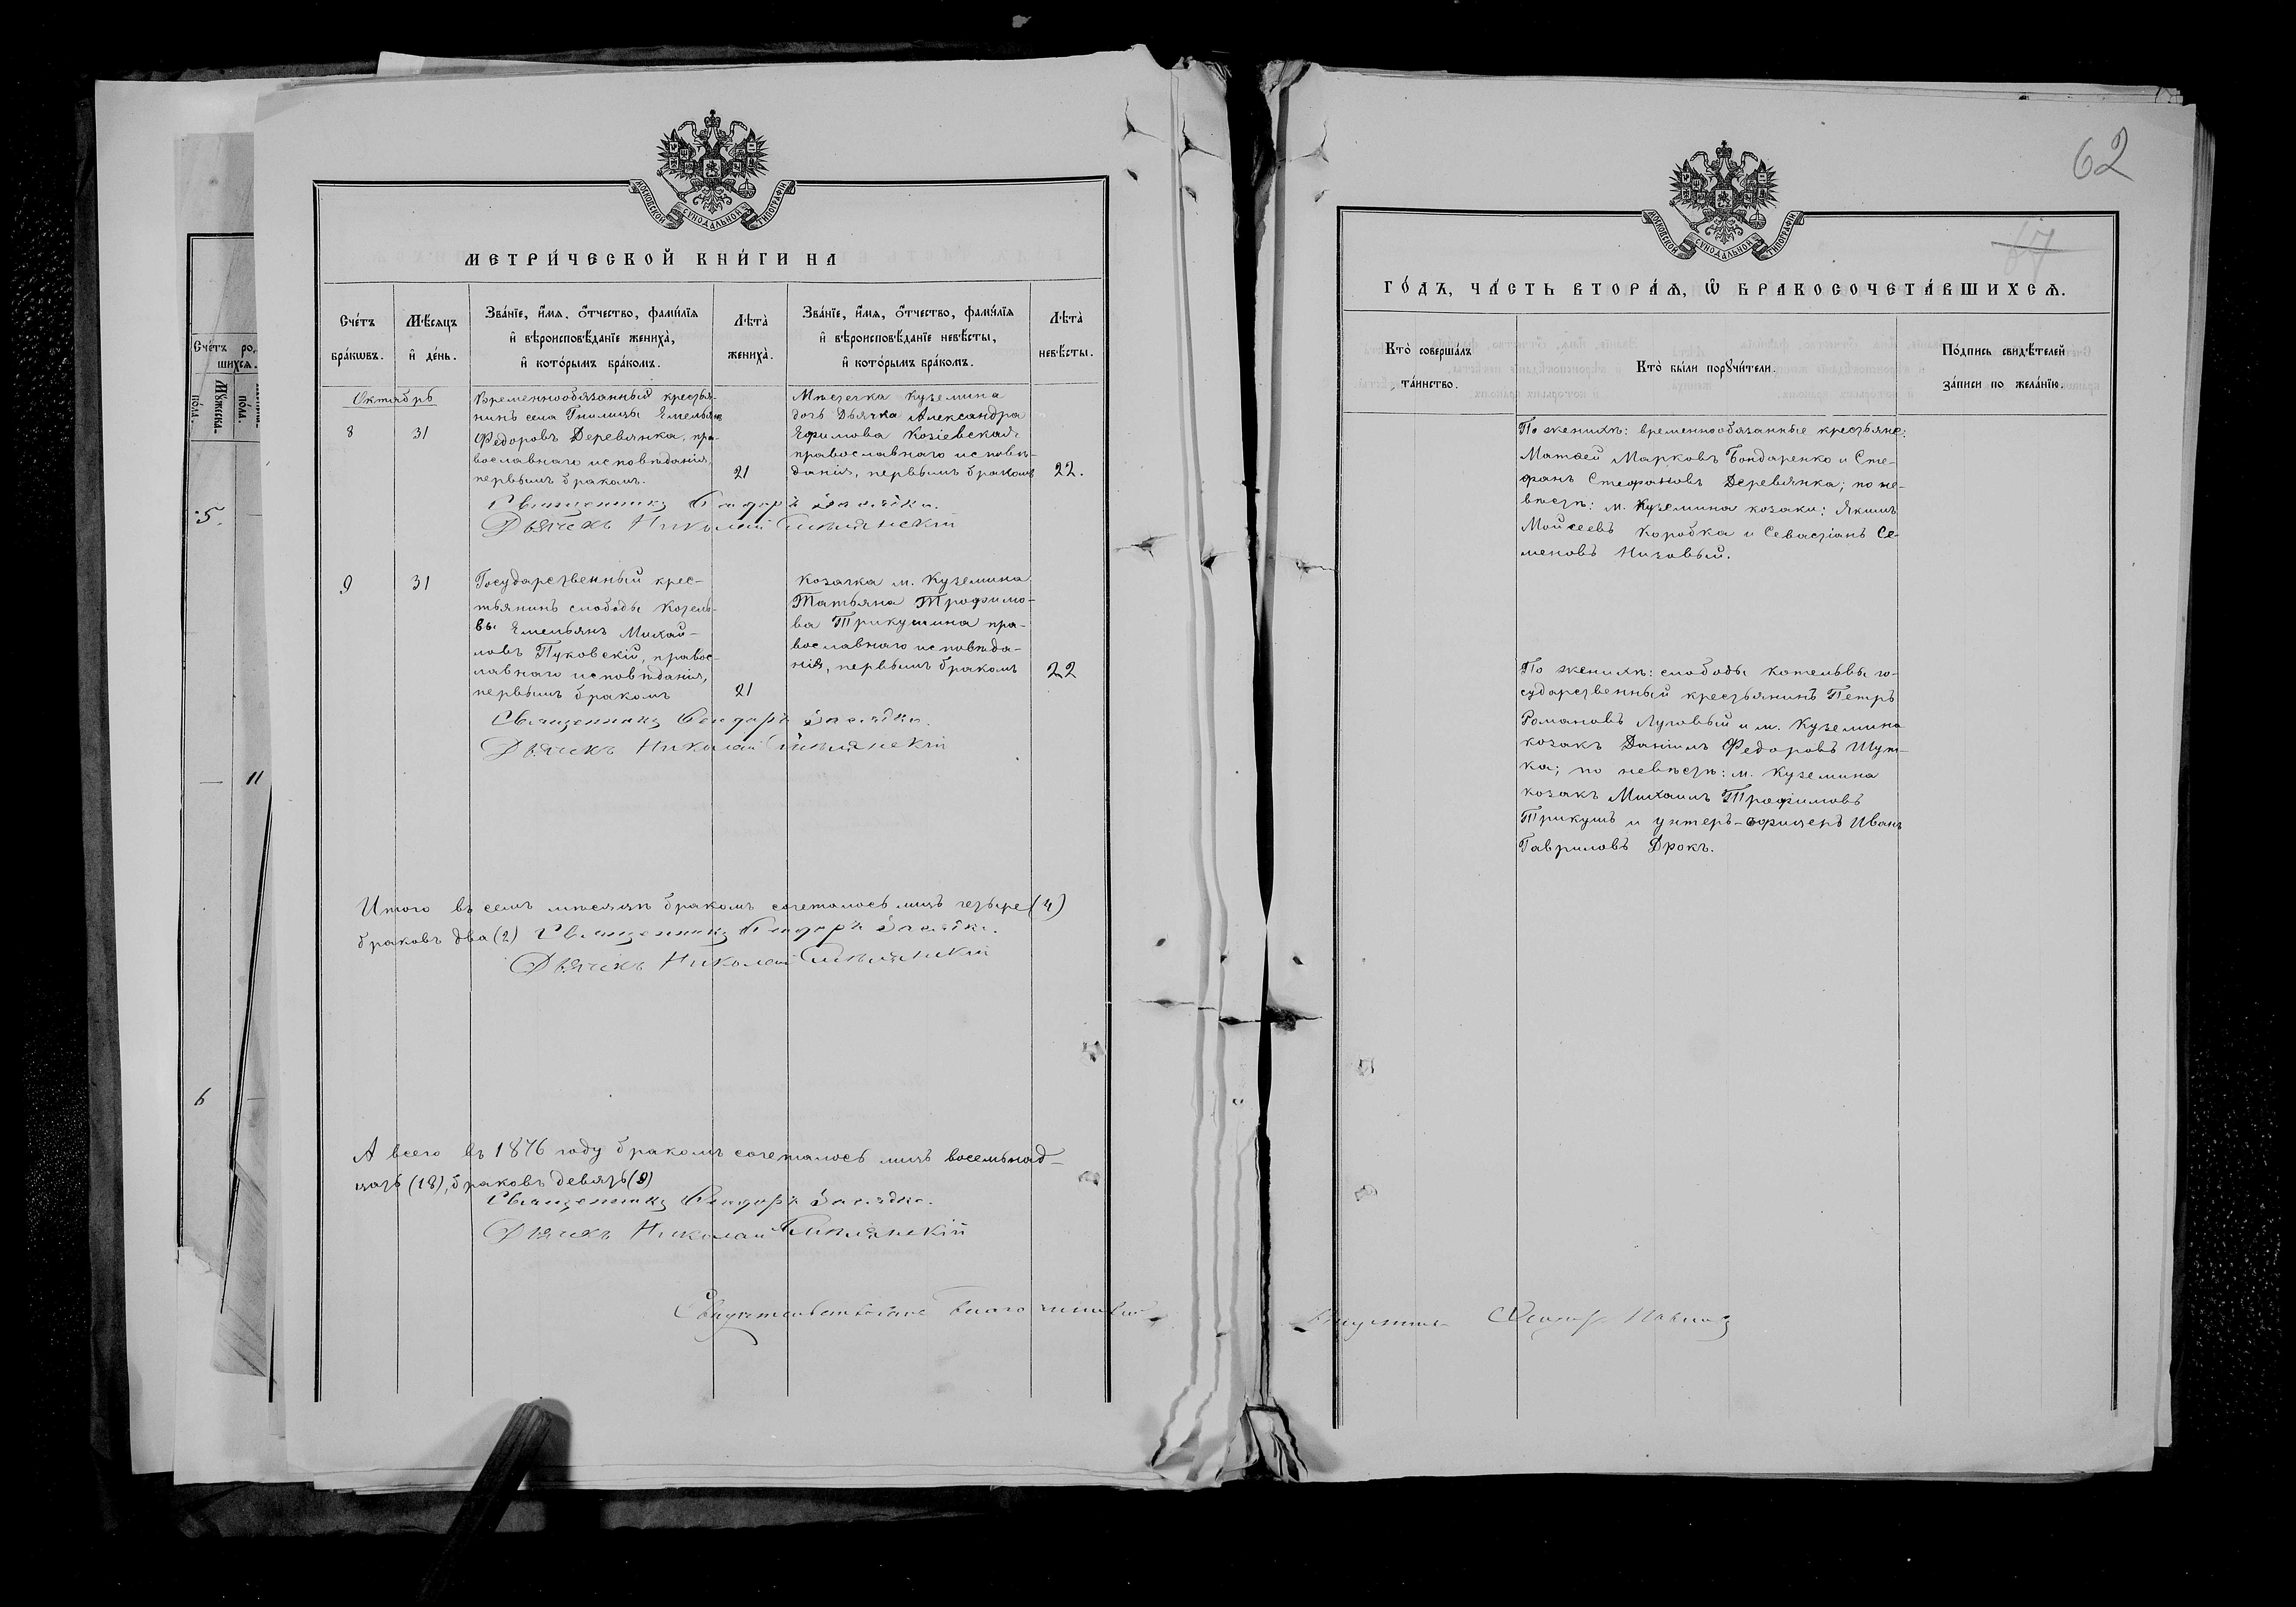 МОСКОВСКОЙ СУНОДАЛЬНОЙ ТИПОГРАФІИ
МЕТРИ́ЧЕСКОЙ КНИ́ГИ НА
Сче́тъ
бра́кωвъ.
Мѣ́сяцъ
и҆ де́нь.
Зва́нїе, и҆́мѧ, ѻ҆́тчество, фами́лїѧ
и҆ вѣроисповѣ́данїе жениха̀,
и҆ кото́рымъ бра́комъ.
Лѣ́та
жениха̀.
Зва́нїе, и҆́мѧ, ѻ҆́тчество, фами́лїѧ
и҆ вѣроисповѣ́данїе невѣ́сты,
и҆ кото́рымъ бра́комъ.
Лѣ́та
невѣ́сты.
Октябрь
8
31
Временнообязанный крестья-
нинъ села Гнилицы Емельянъ
Федоровъ Деревянка, пра-
вославнаго исповѣданія,
первымъ бракомъ.
21
Мѣстечка Куземина
дочь Дьячка Александра
Ефимова Козіевская,
православнаго исповѣ-
данія, первымъ бракомъ
22.
Священникъ Заляdка.
Дьячекъ Николай
9
31
Государственный крес-
тьянинъ слободы Котель-
вы Емельянъ Михай-
ловъ Пуковскій, правос-
лавнаго исповѣданія,
первымъ бракомъ
21
Козачка м. Куземина
Татьяна Трофимо-
ва Трикушина пра-
вославнаго исповѣда-
нія, первымъ бракомъ
22
Священникъ
Дьячекъ Николай
Итого въ семъ мѣсяцѣ бракомъ сочеталось лицъ четыре (4)
браковъ два (2) Священникъ
Дьячекъ Николай
А всего въ 1876 году бракомъ сочеталось лицъ восемьнад-
цать (18), браковъ девять (9)
Священникъ
Дьячекъ Николай
62
67
МОСКОВСКОЙ СУНОДАЛЬНОЙ ТИПОГРАФІИ
ГО́ДЪ, ЧА́СТЬ ВТОРА́Ѧ, Ѿ БРАКОСОЧЕТА́ВШИХСѦ.
Кто̀ соверша́лъ
та́инство.
Кто̀ бы́ли порꙋчи́тели.
По́дпись свидѣ́телей
за́писи по жела́нїю.
По женихѣ: временнообязанные крестьяне:
Матвей Марковъ Бондаренко и Сте-
фанъ Стефановъ Деревянка; по не-
вѣстѣ: м. Куземина козаки: Якимъ
Мойсеевъ Коробка и Севастіанъ Се-
меновъ Низовый.
По женихѣ: слободы Котельвы го-
сударственный крестьянинъ Петръ
Романовъ Луговый и м. Куземина
козакъ Даніилъ Федоровъ Шут-
ка; по невѣстѣ: м. Куземина
козакъ Михаилъ Трофимовъ
Трикушъ и унтеръ-офицеръ Иванъ
Гавриловъ Дрокъ.
Сче́тъ ро-
шихсѧ.
Мꙋ́жеска
по́ла.
по́ла.
5.
11
6